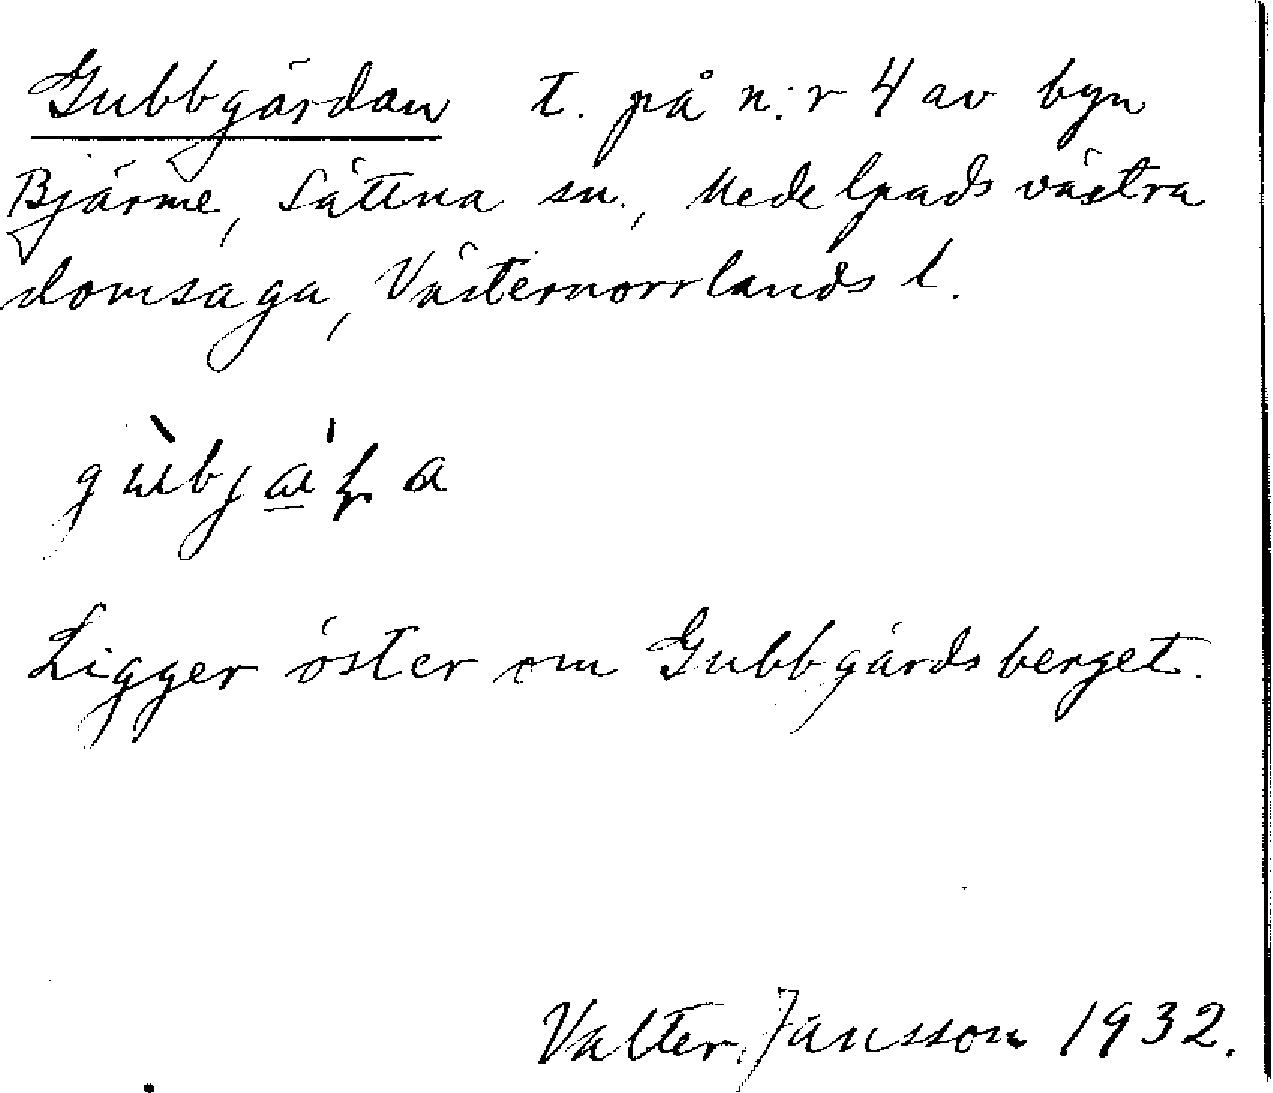 Gubbgärdan t. på n:r 4 av byn
Bjärme, Sättna sn., Medelpads västra
domsaga, Västernorrlands l.
Ligger öster om Gubbgärdsberget.
Valter Jansson 1932.